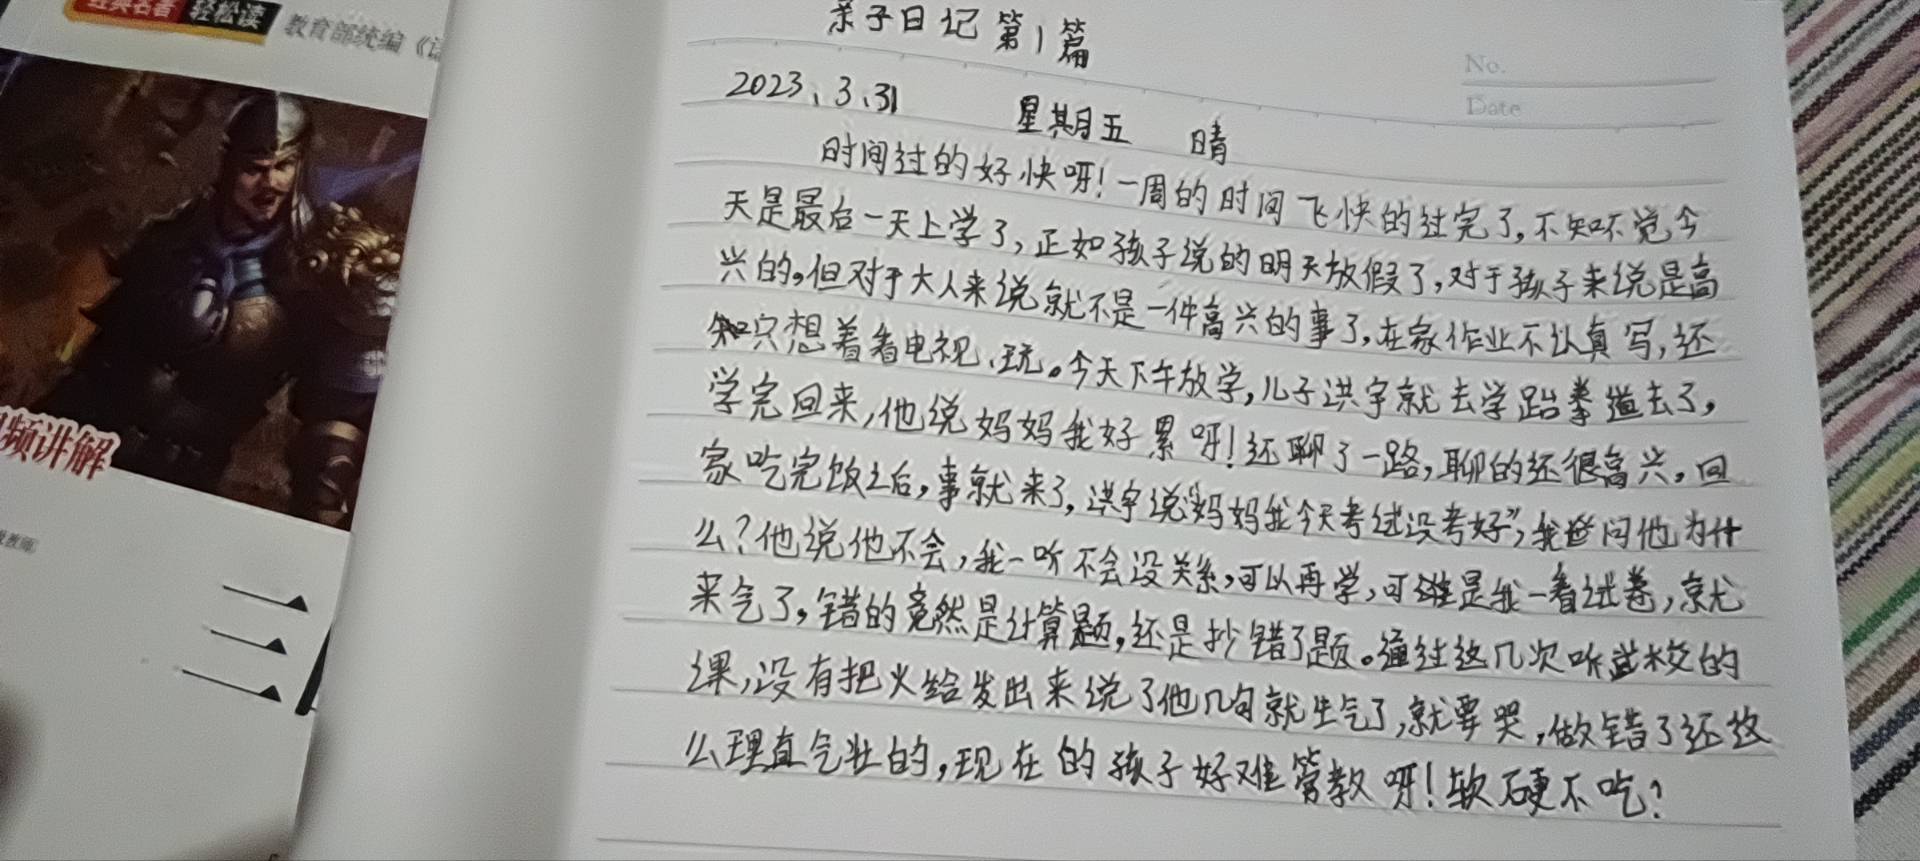 经典名著 轻松读
教育部统编《
视频讲解
亲子日记第1篇
No.
Date
2023、3、31 星期五 晴
时间过的好快呀！一周的时间飞快的过完了，不知不觉今
天是最后一天上学了，正如孩子说的明天放假了，对于孩子来说是高
兴的。但对于大人来说就不是一件高兴的事了，在家作业不认真写，还
知只想着看电视、玩。今天下午放学，儿子洪宇就去学跆拳道去了，
学完回来，他说妈妈我好累呀！还聊了一路，聊的还很高兴。回
家吃完饭之后，事就来了，洪宇说“妈妈我今天考试没考好”，我问他为什
么？他说他不会，我一听不会没关系，可以再学，可谁是我一看试卷，就
来气了，错的竟然是计算题，还是抄错了题。通过这几次听盘校的
课，没有把火给发出来说了他几句就生气了，就要哭，做错了还这
么理直气壮的，现在的孩子好难管教呀！软硬不吃？